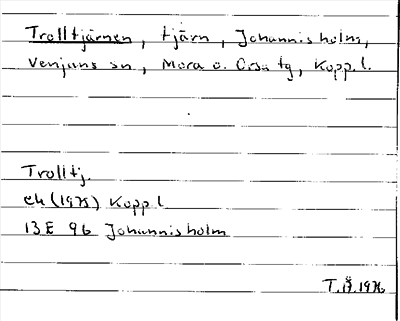 Trolltjärnen, tjärn, Johannisholm,
Venjans sn, Mora o. Orsa tg, Kopp. l.
Trolltj.
ek (1975) Kopp l
13E 9b Johannisholm
1976